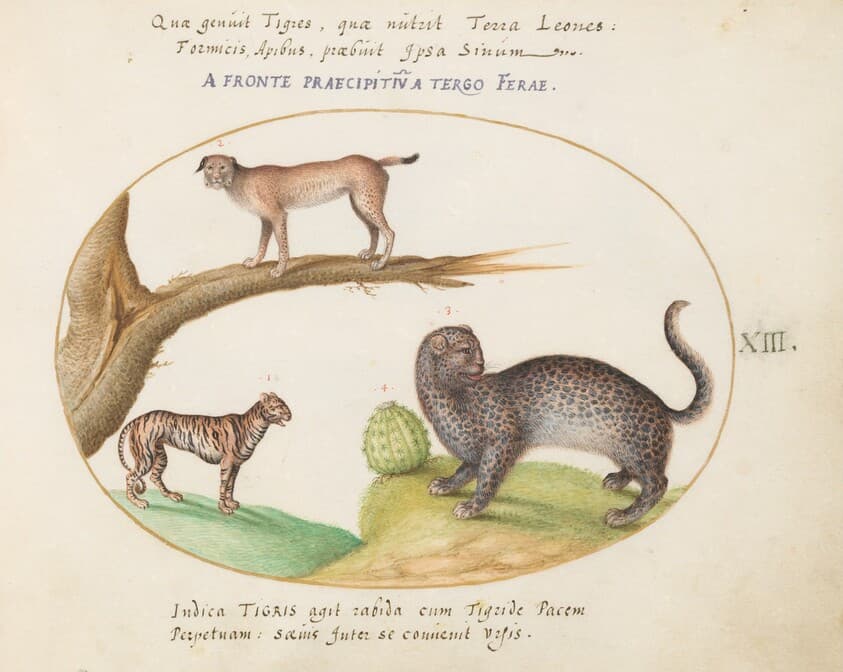 Quæ genuit Tigres, quæ nutrit Terra Leones:
Formicis, Apibus, præbuit Ipsa Sinum.
A FRONTE PRAECIPITIŨ A TERGO FERAE.
2
3
XIII.
1
4
Indica TIGRIS agit rabida cum Tigride Pacem
Perpetuam: Sæuis Inter se conuenit Vrsis.